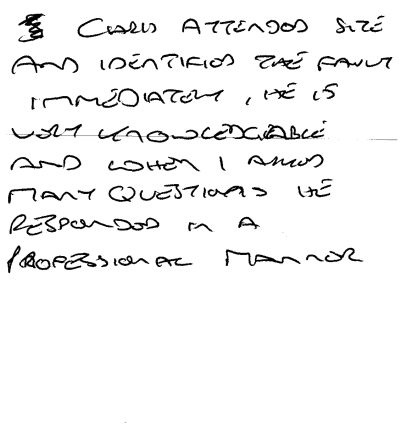 CHRIS ATTENDED SITE
AND IDENTIFIED THE FAULT
IMMEDIATELY, HE IS
VERY KNOWLEDGEABLE
AND WHEN I ASKED
MANY QUESTIONS HE
RESPONDED IN A
PROFESSIONAL MANNOR